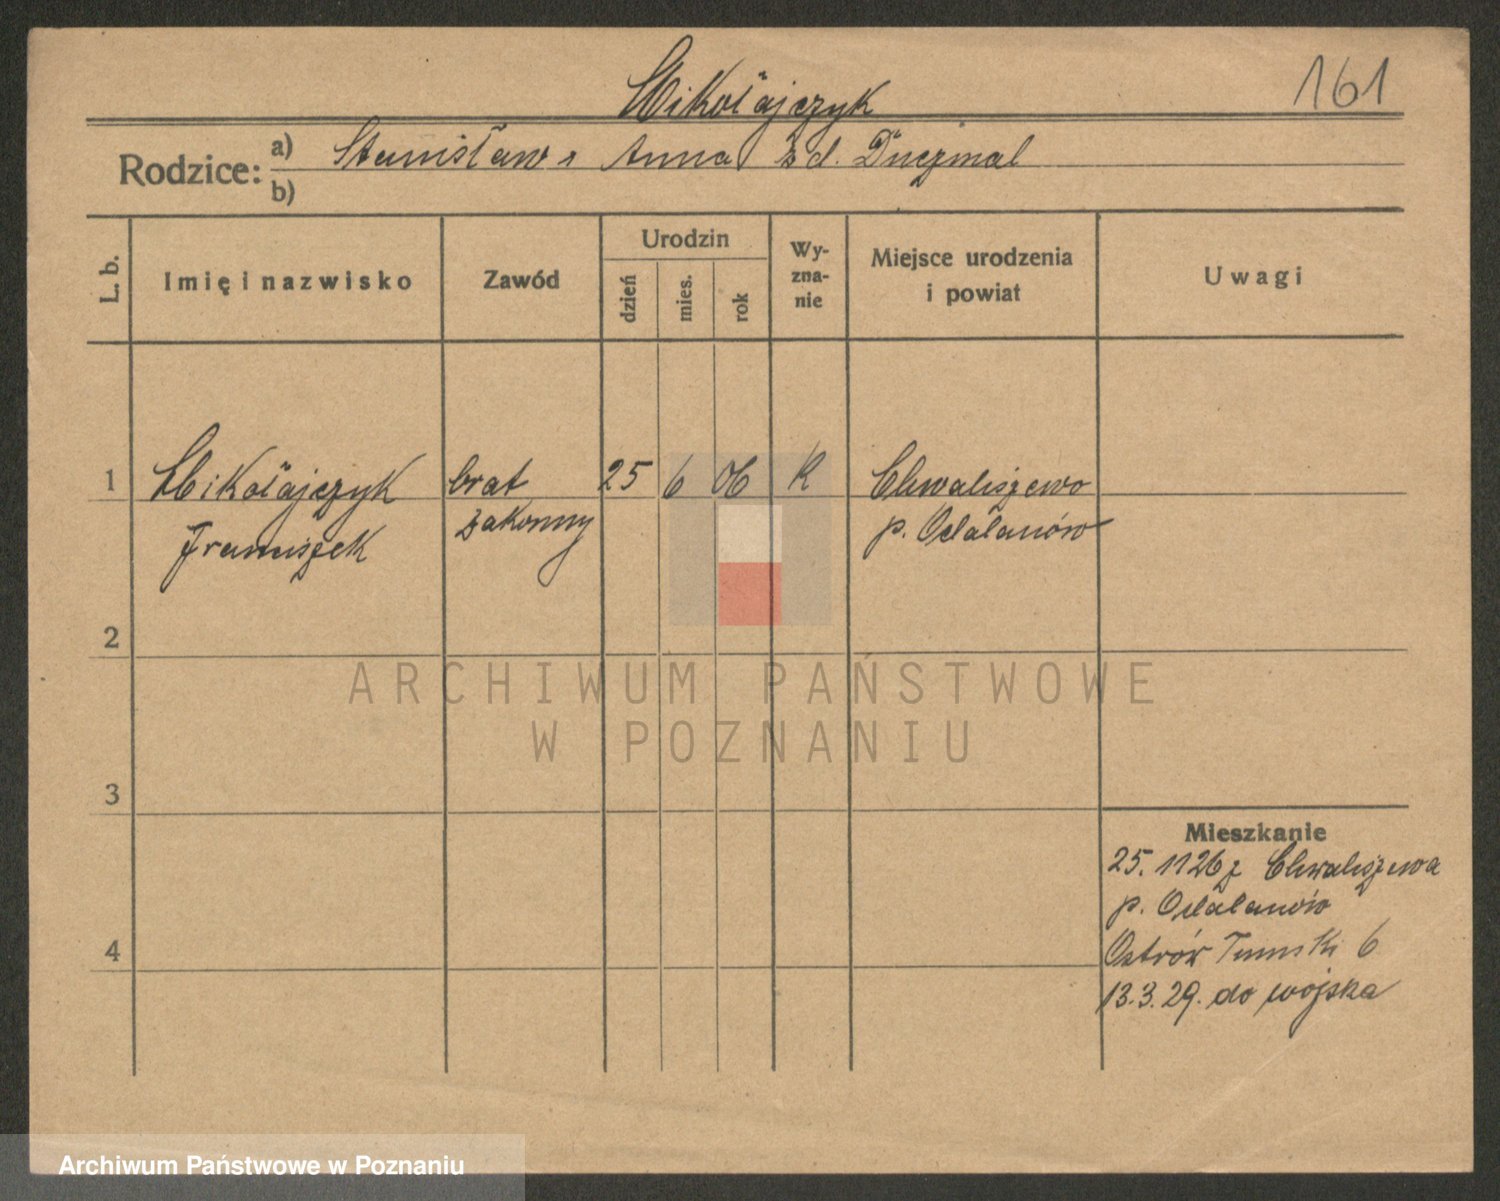 161
Mikołajczyk
Rodzice: a) Stanisław i Anna z d.
b)
L. b.
Imię i nazwisko
Zawód
Urodzin
dzień
mies.
rok
Wy-
zna-
nie
Miejsce urodzenia
i powiat
Uwagi
1 Mikołajczyk brat 25 6 06 K Chwaliszewo
Franciszek zakonny p. Odolanów
2
3
4
Mieszkanie
25. 11 26 z Chwaliszewa
p. Odolanów
Ostrów Tumski 6
13.3.29. do wojska
ARCHIWUM PAŃSTWOWE
W POZNANIU
Archiwum Państwowe w Poznaniu